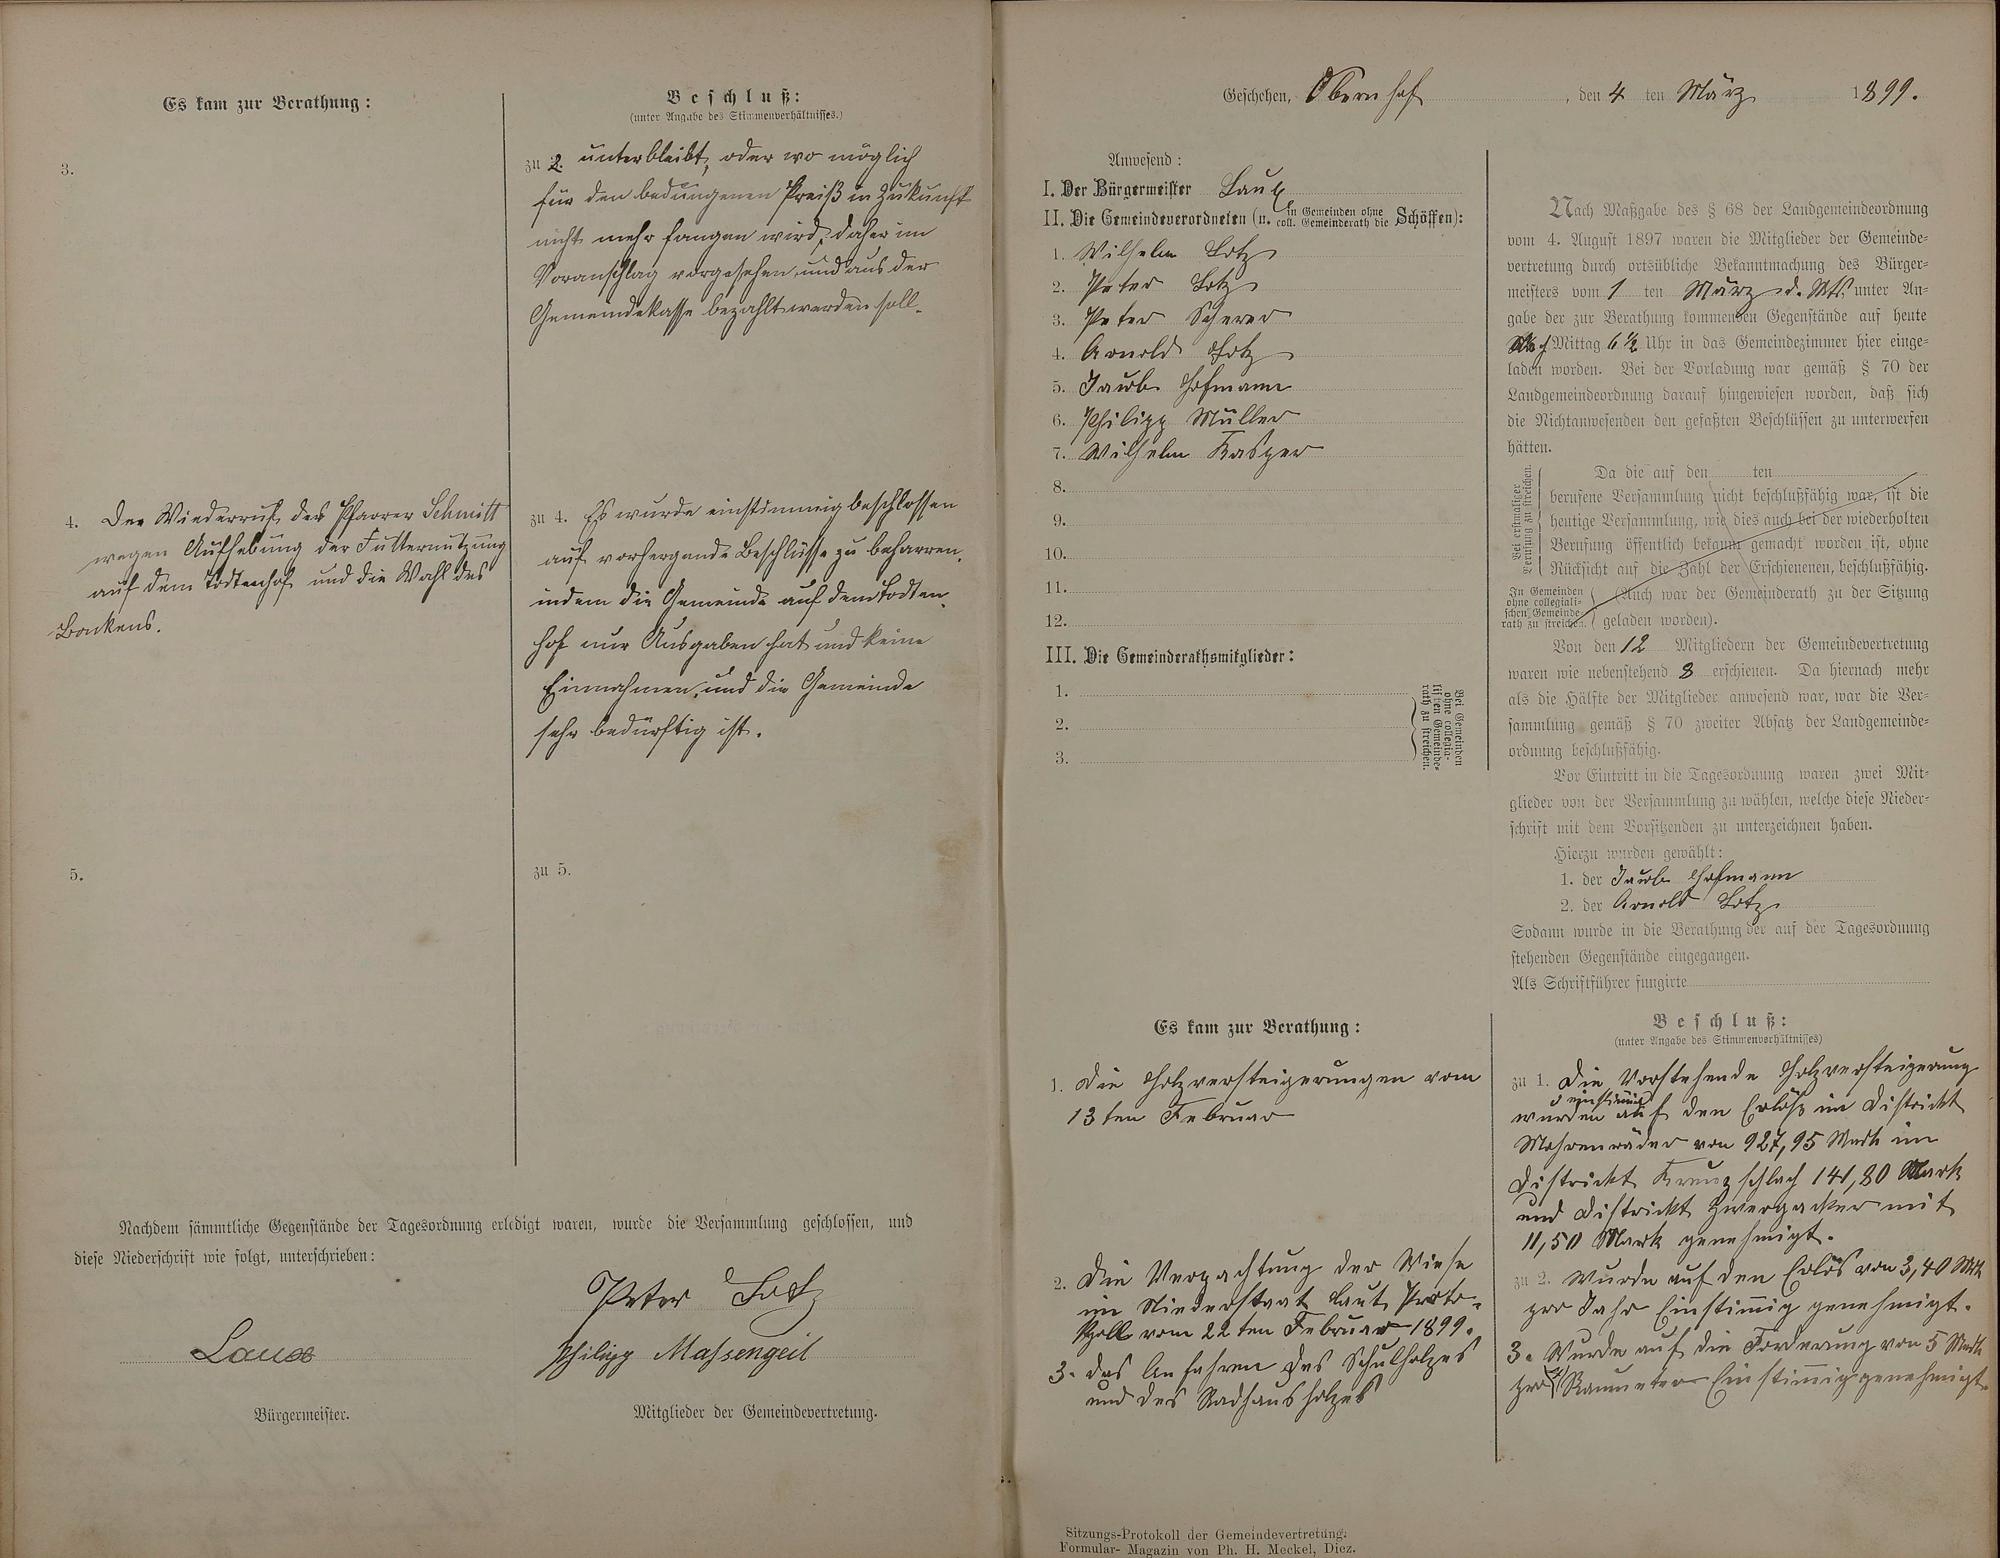 Es kam zur Berathung:
3.
4. Der Wiederruf des Pfarrer Schmitt
wegen Aufhebung der Futternutzung
auf dem Todtenhof und die Wahl des
5.
Beschluß:
(unter Angabe des Stimmenverhältnisses.)
zu 2. unterbleibt, oder wo möglich
für den bedungenen Preiß in Zukunft
nicht mehr fangen wird, daher im
Voranschlag vorgesehen und aus der
Gemeindekasse bezahlt werden soll.
zu 4. Es wurde einstimmig beschlossen
auf vorhergande Beschlüsse zu beharren,
indem die Gemeinde auf dem Todten-
hof nur Ausgaben hat und keine
Einnahmen, und die Gemeinde
sehr bedürftig ist.
zu 5.
Nachdem sämmtliche Gegenstände der Tagesordnung erledigt waren, wurde die Versammlung geschlossen, und
diese Niederschrift wie folgt, unterschrieben:
Peter Lotz
Philipp Massengeil
Bürgermeister.
Mitglieder der Gemeindevertretung.
Geschehen, Obernhof, den 4 ten März 1899.
Anwesend:
I. Der Bürgermeister
II. Die Gemeindeverordneten (u. in Gemeinden ohne coll. Gemeinderath die Schöffen):
1. Wilhelm Lotz
2. Peter Lotz
3. Peter Scherer
4. Arnold Lotz
5. Jacob Hofmann
6. Philipp Müller
7. Wilhelm Kasper
8.
9.
10.
11.
12.
III. Die Gemeinderathsmitglieder:
1.
2.
3.
Bei Gemeinden
ohne collegia-
lischen Gemeinde-
rath zu streichen.
Nach Maßgabe des § 68 der Landgemeindeordnung
vom 4. August 1897 waren die Mitglieder der Gemeinde-
vertretung durch ortsübliche Bekanntmachung des Bürger-
meisters vom 1 ten März d. Mts. unter An-
gabe der zur Berathung kommenden Gegenstände auf heute
Mittag 6 1/2 Uhr in das Gemeindezimmer hier einge-
laden worden. Bei der Vorladung war gemäß § 70 der
Landgemeindeordnung darauf hingewiesen worden, daß sich
die Nichtanwesenden den gefaßten Beschlüssen zu unterwerfen
hätten.
Bei erstmaliger
Berufung zu streichen.
Da die auf den ten
berufene Versammlung nicht beschlußfähig war, ist die
heutige Versammlung, wie dies auch bei der wiederholten
Berufung öffentlich bekannt gemacht worden ist, ohne
Rücksicht auf die Zahl der Erschienenen, beschlußfähig.
In Gemeinden
ohne collegiali-
schen Gemeinde-
rath zu streichen.
(Auch war der Gemeinderath zu der Sitzung
geladen worden).
Von den 12 Mitgliedern der Gemeindevertretung
waren wie nebenstehend 8 erschienen. Da hiernach mehr
als die Hälfte der Mitglieder anwesend war, war die Ver-
sammlung gemäß § 70 zweiter Absatz der Landgemeinde-
ordnung beschlußfähig.
Vor Eintritt in die Tagesordnung waren zwei Mit-
glieder von der Versammlung zu wählen, welche diese Nieder-
schrift mit dem Vorsitzenden zu unterzeichnen haben.
Hierzu wurden gewählt:
1. der Jacob Hofmann
2. der Arnold Lotz
Sodann wurde in die Berathung der auf der Tagesordnung
stehenden Gegenstände eingegangen.
Als Schriftführer fungirte
Es kam zur Berathung:
1. Die Holzversteigerungen vom
13ten Februar
2. Die Verpachtung der Wiese
im Niederstaat laut Proto-
koll vom 22ten Februar 1899.
3. das Anfahren des Schulholzes
und des Radhausholzes
Beschluß:
(unter Angabe des Stimmenverhältnisses)
zu 1. Die Vorstehende Holzversteigerung
wurden einstimmig auf den Erlöß im District
von 927,95 Mark im
District 141,80 Mark
und District Zwergacker mit
11,50 Mark genehmigt.
zu 2. Wurde auf den Erlös von 3,40 Mk
pro Jahr Einstimmig genehmigt.
3. Wurde auf die Forderung von 5 Mark
pro Raumeter Einstimmig genehmigt.
Sitzungs-Protokoll der Gemeindevertretung.
Formular-Magazin von Ph. H. Meckel, Diez.